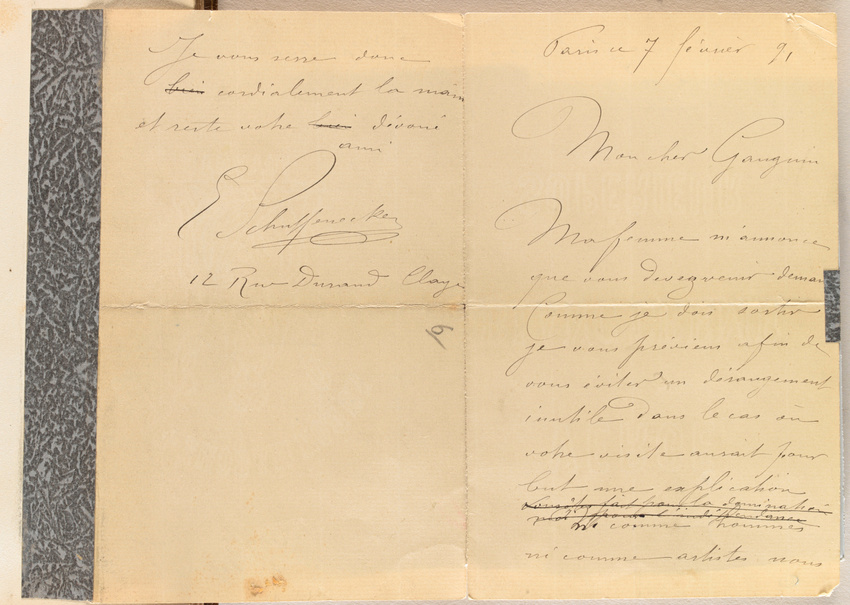 Paris ce 7 février 91
Mon cher Gauguin
Ma femme m'annonce
que vous devez venir demain
Comme je dois sortir
je vous préviens afin de
vous éviter un dérangement
inutile dans le cas où
votre visite aurait pour
but une explication
fait pour la domination
moi pour l'indépendance
ni comme hommes
ni comme artistes nous
Je vous serre donc
bien cordialement la main
et reste votre bien dévoué
ami
E Schuffenecker
12 Rue Durand Claye
6